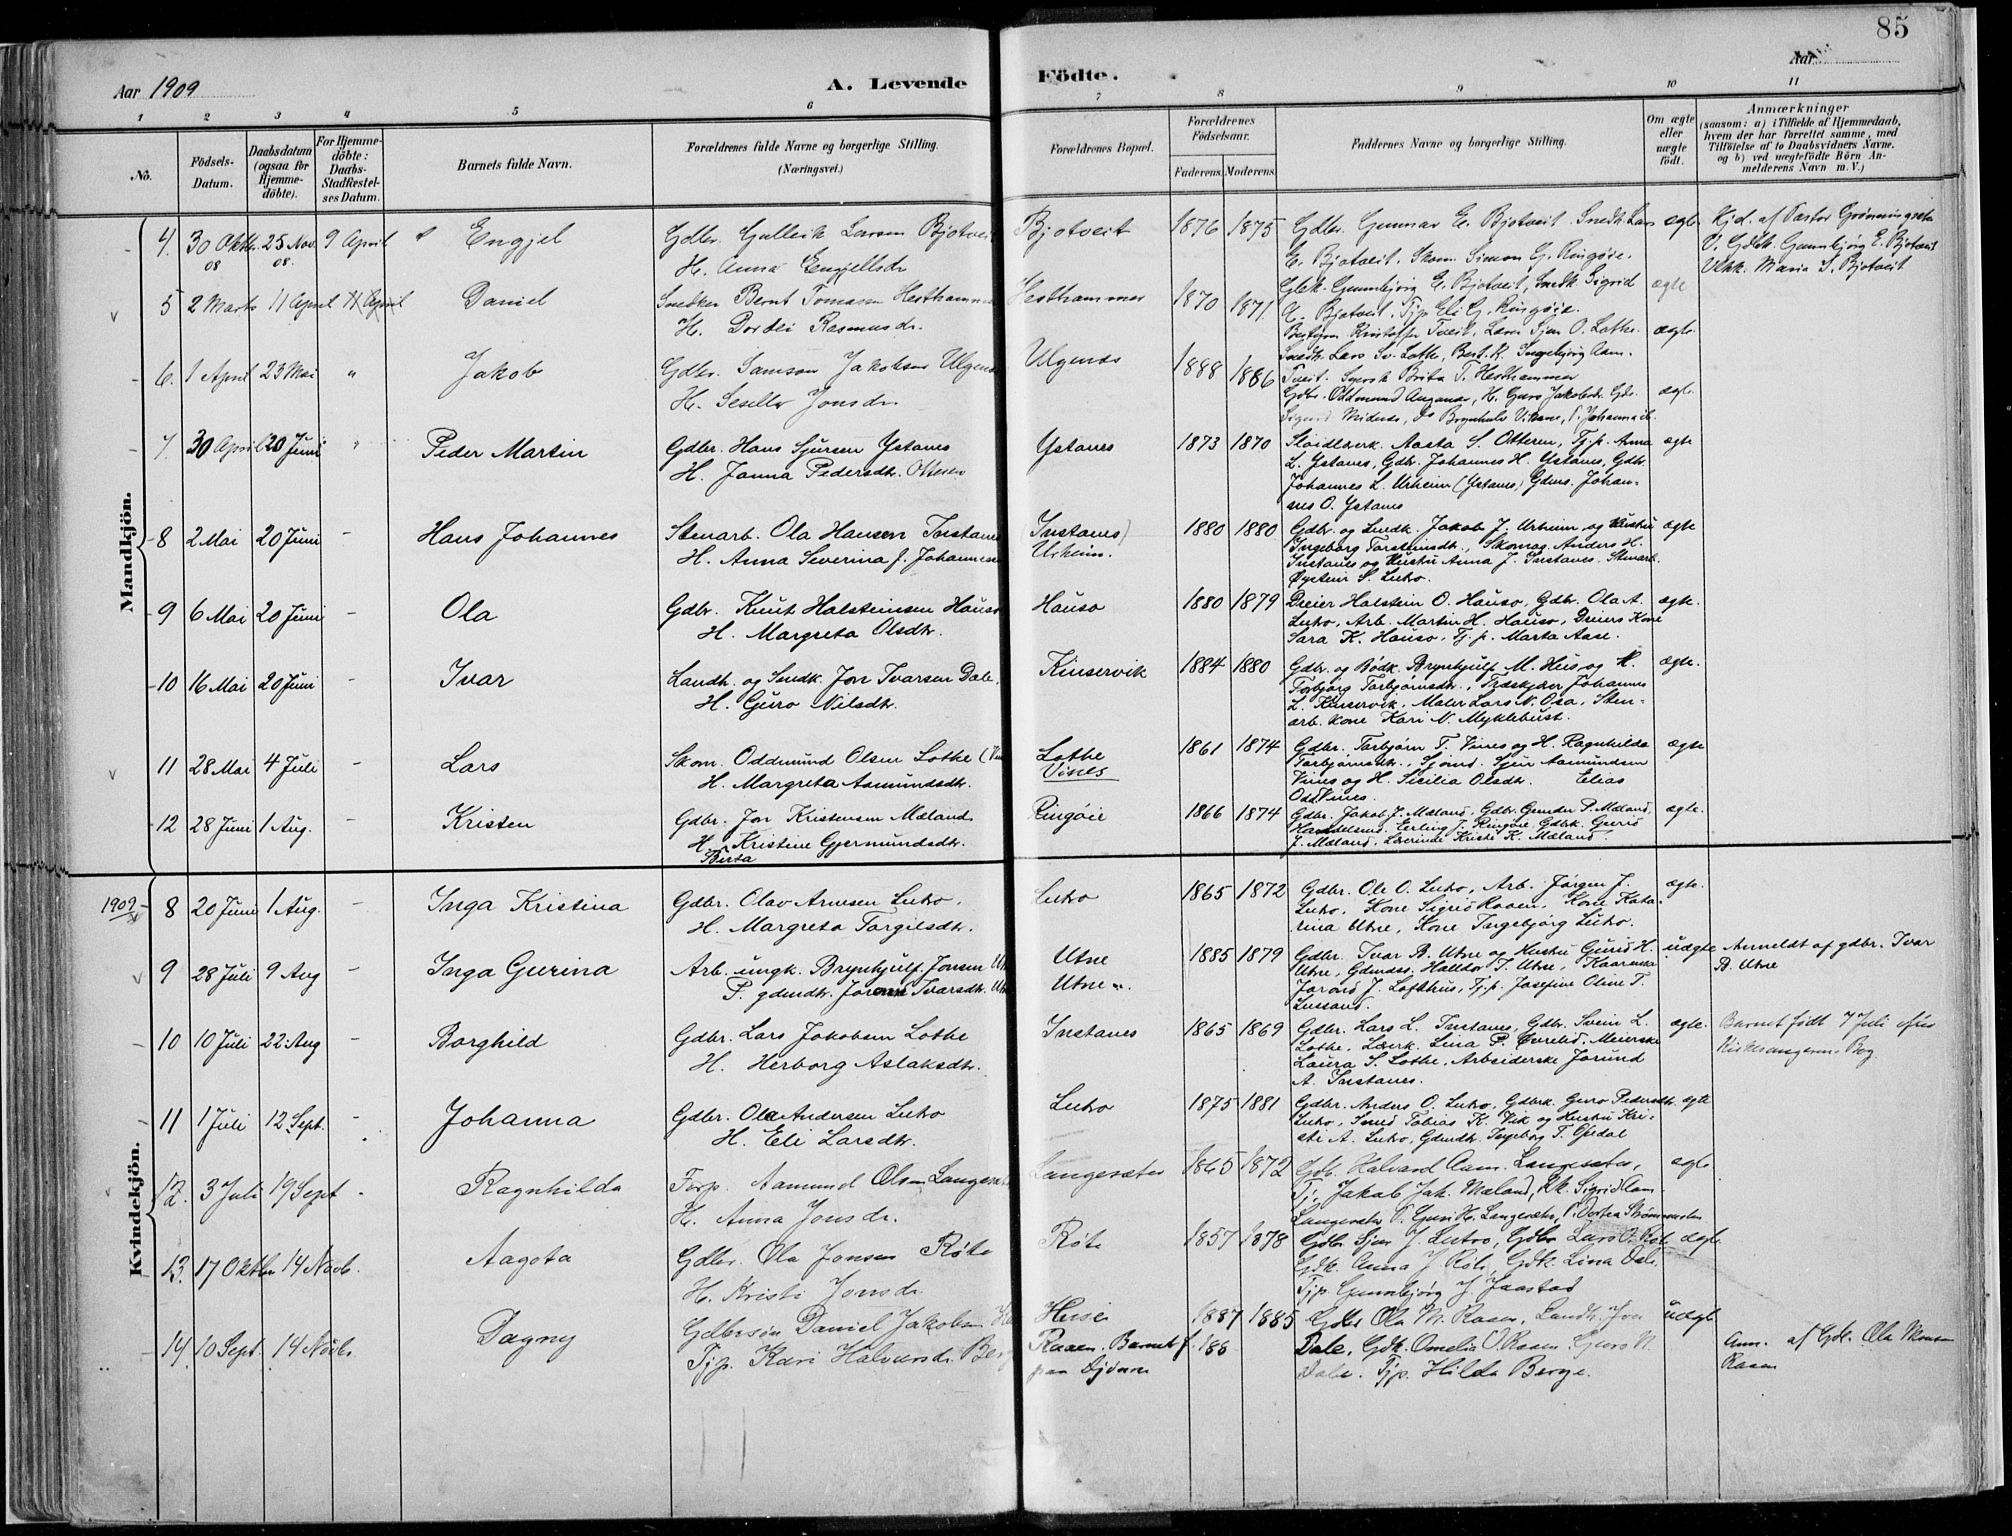 85
Aar 1909
A. Levende
Födte.
Aar
1 2 3 4 5 6 7 8 9 10 11
No.
Födsels-Datum.
Daabsdatum (ogsaa for Hjemme-döbte).
For Hjemme-döbte: Daabs-Stadfæstel-ses Datum.
Barnets fulde Navn.
Forældrenes fulde Navne og borgerlige Stilling. (Næringsvei.)
Forældrenes Bopæl.
Forældrenes Födselsaar.
Faderens. Moderens.
Faddernes Navne og borgerlige Stilling.
Om ægte eller uægte födt.
Anmærkninger
(saasom: a) i Tilfælde af Hjemmedaab,
hvem der har forrettet samme, med
Tilföielse af to Daabsvidners Navne.
og b) ved uægtefödte Börn An-
melderens Navn m. V.)
Mandkjön.
4. 30 Oktbr. 08 25 Nov. 08. 9 April Engjel
Gdbr. Gulleik Larsen Bjotveit
H. Anna Engjellsdr
Bjotveit 1876 1875
Gdbr. Gunnar E. Bjotveit. Snedk. Lars
E. Bjotveit. Skom. Simon G. Ringøie.
Gdk. Gunnbjørg E. Bjotveit, Snedk. Sigrid
A. Bjotveit. Tjp. Eli G. Ringøie.
ægte
Hjd. af Pastor Grönningsæter
V. Gdk. Gunnbjørg E. Bjotveit
Ukk. Maria S. Bjotveit
5 2 Marts 11 April 11 April Daniel
Snedker Bernt Tomassen Hesthammer
H. Dordei Rasmusdr.
Hesthammer 1870 1871
Kristoffer Tveit, Sjur O. Lothe.
Snedk. Lars Sv. Lothe, Ingebjørg Aam.
Tveit. Syersk Brita T. Hesthammer
ægte
6. 1 April 23 Mai " Jakob
Gdbr. Samson Jakobsen Ulgenes
H. Seselie Jonsdr.
Ulgenes 1888 1886
Gdbr. Oddmund H. Guro Jakobsdr. Gdr.
ægte
7 30 April 20 Juni " Peder Martin
Gdbr. Hans Sjursen Ystanes
H. Janna Pedersdtr. Ottesen
Ystanes 1873 1870
Sløidlærk. Aasta S. Ottesen, Tj.p. Anna
L. Ystanes, Gdbr. Johannes H. Ystanes, Gdbr.
Johannes L. Urheim (Ystanes) Gdms. Johan-
nes O. Ystanes
ægte
8 2 Mai 20 Juni - Hans Johannes
Stenarb. Ola Hansen Instanes
H. Anna Severina f. Johannesen
Instanes)
Urheim.
1880 1880
Gdbr. og Snedk. Jakob J. Urheim og Hustru
Ingeborg Torsteinsdtr., Skomag. Anders H.
Instanes og Hustru Anna J. Instanes, Stenarb.
Øystein S. Lutro.
ægte
9 6 Mai 20 Juni - Ola
Gdbr. Knut Halsteinsen Hauso
H. Margreta Olsdtr.
Hauso 1880 1879
Dreier Halstein O. Hauso, Gdbr. Ola A.
Lutro, Arb. Martin H. Hauso, Dreiers Kone
Sara K. Hauso, Tj.p. Marta Aase.
ægte.
10 16 Mai 20 Juni - Ivar
Landh. og Smdk. Jon Ivarsen Dale,
H. Guro Nilsdtr.
Kinservik 1884 1880
Gdbr. og Bødk. Brynhjulf M. Hus og H.
Torbjørg Torbjørnsdtr., Træskjærer Johannes
L. Kinservik, Maler Lars N. Osa, Sten-
arb. kone Kari N. Myklebust.
ægte.
11 28 Mai 4 Juli - Lars
Skom. Oddmund Olsen Lothe (Vin
H. Margreta Aamundsdtr.
Lothe
Vines
1861 1874
Gdbr. Torbjørn T. Vines og H. Ragnhilda
Torbjørnsdtr., Sjømd. Sjur Aamundsen
Vines og H. Sicilia Olsdtr. Elias
Odd Vines.
ægte
12 28 Juni 1 Aug. - Kristen
Gdbr. Jon Kristensen Mæland
H. Kristine Gjermundsdtr.
Berta
Ringøie 1866 1874
Gdbr. Jakob J. Mæland, Gdbr. Gunder P. Mæland,
Handelsmd. Erling J. Ringøie, Gdbrk. Gurid
J. Mæland, Lærerinde Kristi K. Mæland.
ægte.
Kvindekjön.
1909 8 20 Juni 1 Aug. - Inga Kristina
Gdbr. Olav Arnesen Lutro.
H. Margreta Torgilsdtr.
Lutro 1865 1872
Gdbr. Ole O. Lutro, Arb. Jørgen J.
Lutro, Kone Sigrid Raaen, Kone Kata-
rina Utne, Kone Ingebjørg Lutro.
ægte.
9 28 Juli 9 Aug - Inga Gurina
Arb. ungk. Brynhjulf Jonsen Utne
P. gdmdtr. Jorond Ivarsdtr. Utne
Utne
Utne "
1885 1879
Gdbr. Ivar B. Utne og Hustru Gurid H.
Utne, Gdmdss. Halldor I. Utne, Kaarmske
Jorond J. Lofthus, Tj.p. Josefine Oline T.
Lussand.
uægte
Anmeldt af gdbr. Ivar
B. Utne
10 10 Juli 22 Aug - Borghild
Gdbr. Lars Jakobsen Lothe
H. Herborg Aslaksdtr.
Instanes 1865 1869
Gdbr. Lars L. Instanes, Gdbr. Svein L.
Lothe, Lærk. Lina P. Meierske
Laura S. Lothe, Arbeiderske Jorund
A. Instanes.
ægte.
Barnet født 7 Juli efter
Kirkesangerens Bog.
11 1 Juli 12 Sept. - Johanna
Gdbr. Ola Andersen Lutro
H. Eli Larsdtr.
Lutro 1875 1881
Gdbr. Anders O. Lutro, Gdbrk. Guro Pedersdtr.
Lutro, Smed Tobias K. Vik og Hustru Kri-
sti A. Lutro, Gdmdtr. Ingeborg T. Opedal
ægte
12. 3 Juli 19 Sept - Ragnhilda
Forp. Aamund Olsen Langesæter
H. Anna Jonsdr.
Langesæter 1865 1872
Gdb. Halvard Aam. Langesæter,
Tj. Jakob Jak. Mæland, Sigrid Aam.
Langesæter Guri H. Langesæter, Dortea
ægte
13. 17 Oktbr 14 Novb. Aagota
Gdbr. Ola Jonsen Røte
H. Kristi Jonsdr
Røte 1857 1878
Gdbr Sjur J. Lutro, Gdbr Lars O. Røte
Gdk. Anna J Røte, Gdk. Lina Dale,
Tjp. Gunnbjørg J Jaastad
ægte.
14. 10 Sept. 14 Novb. Dagny
Gdbrsøn Daniel Jakobsen
Tjp. Kari Halvorsdr. Berge
Huse
Raaen. Barnet f.
paa Djønne
1887 1885
188
Gdbr Ola M. Raaen, Landh. Jon
Dale, Gdk. Omelia O. Raaen, Guro N.
Dale. Tjp. Hilda Berge.
uægte
Anm. af Gdk. Ola Monsen
Raaen